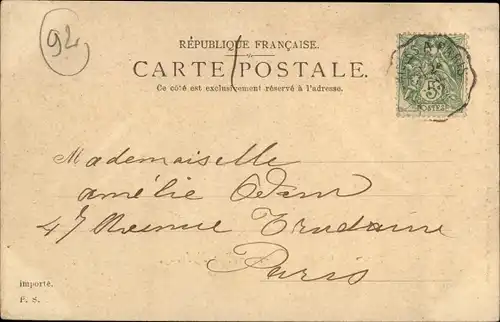 92
RÉPUBLIQUE FRANÇAISE.
CARTE POSTALE.
Ce côté est exclusivement réservé à l'adresse.
5c
POSTES
Mademoiselle
Amélie
47 Avenue Trudaine
Paris
Importé.
F. S.